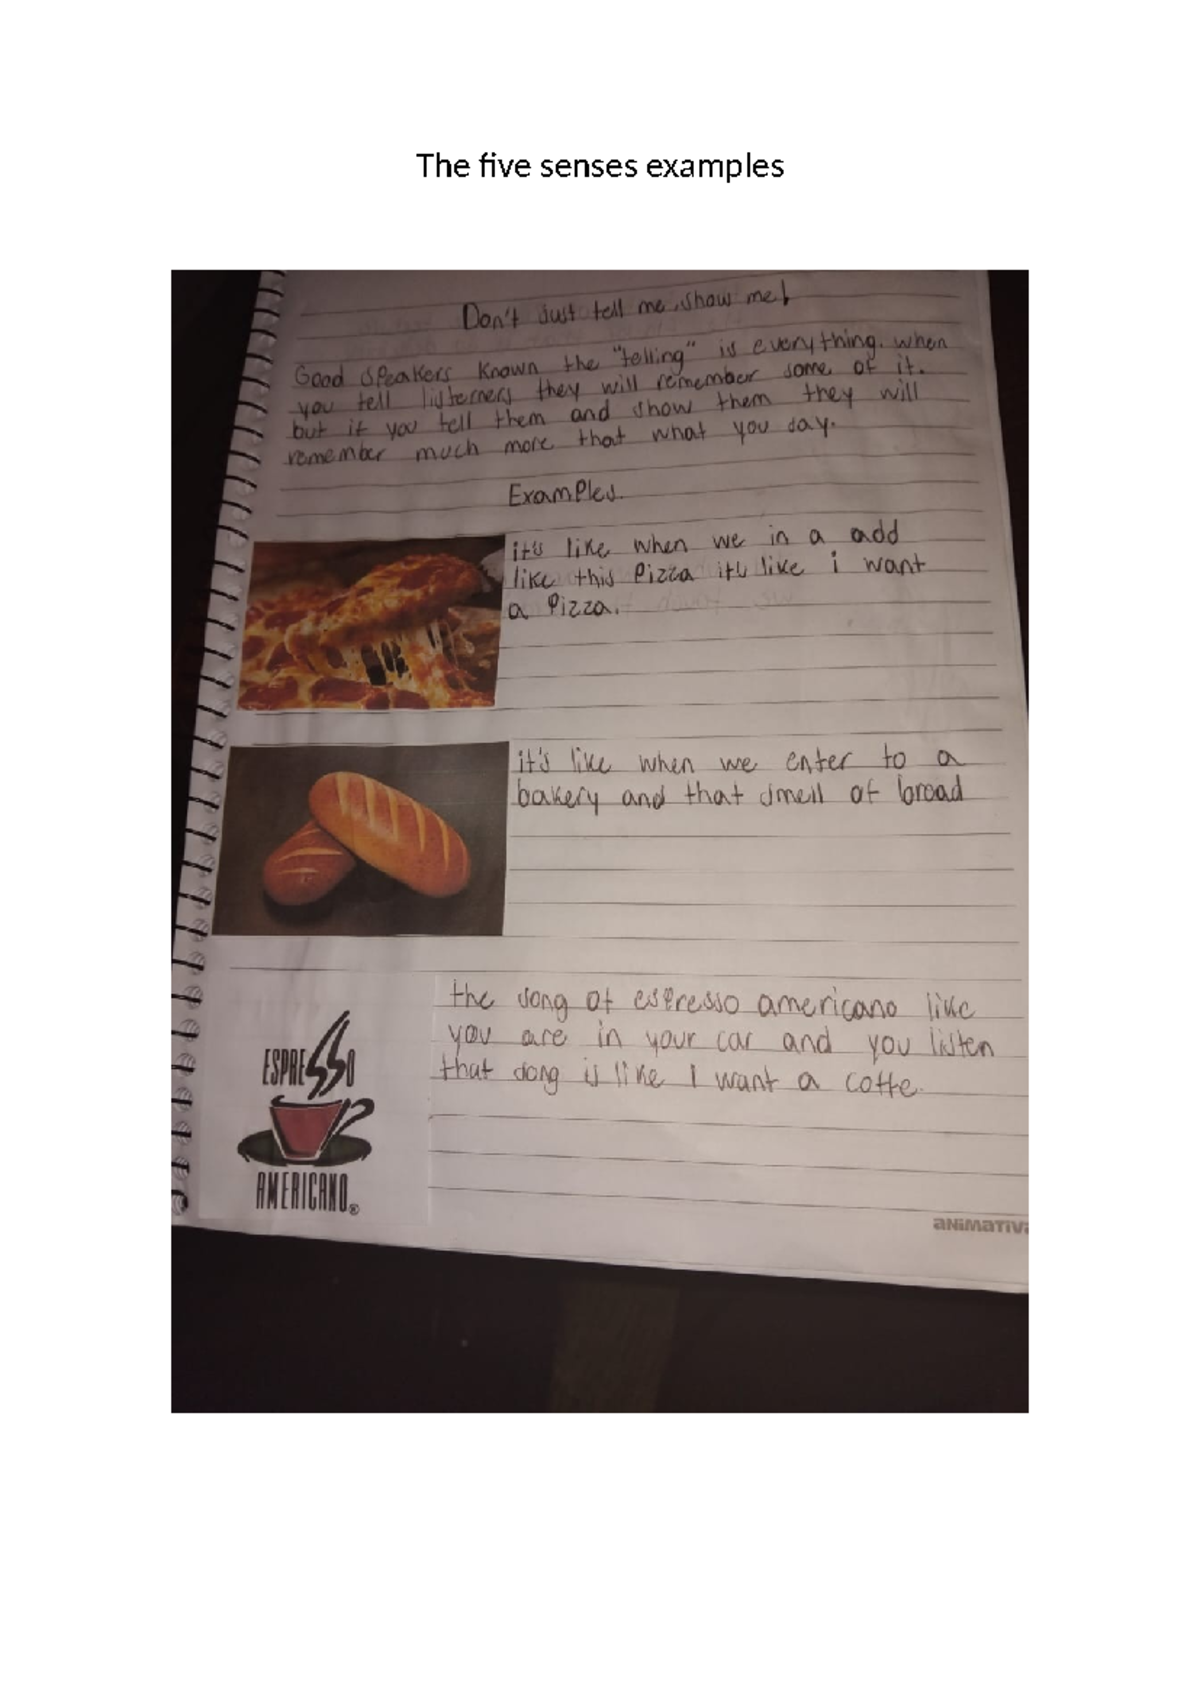 The five senses examples
Don't just tell me, show me!
Good speakers known the "telling" is everything. when
you tell listerners they will remember some of it.
but if you tell them and show them they will
remember much more that what you say.
Examples.
it's like when we in a add
like this Pizza it's like i want
a Pizza.
it's like when we enter to a
bakery and that smell of bread
the song of espresso americano like
you are in your car and you listen
that song is like I want a coffe.
ESPRESSO
AMERICANO®